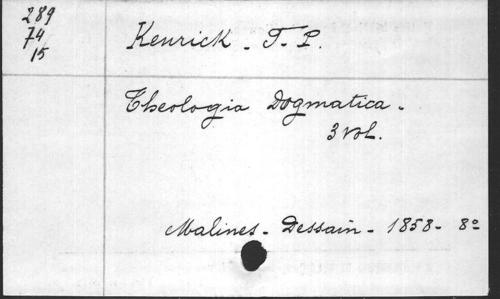 289
74
15
Kenrick - T- P.
Theologia Dogmatica -
3 vol.
Malines - Dessain - 1858 - 8º